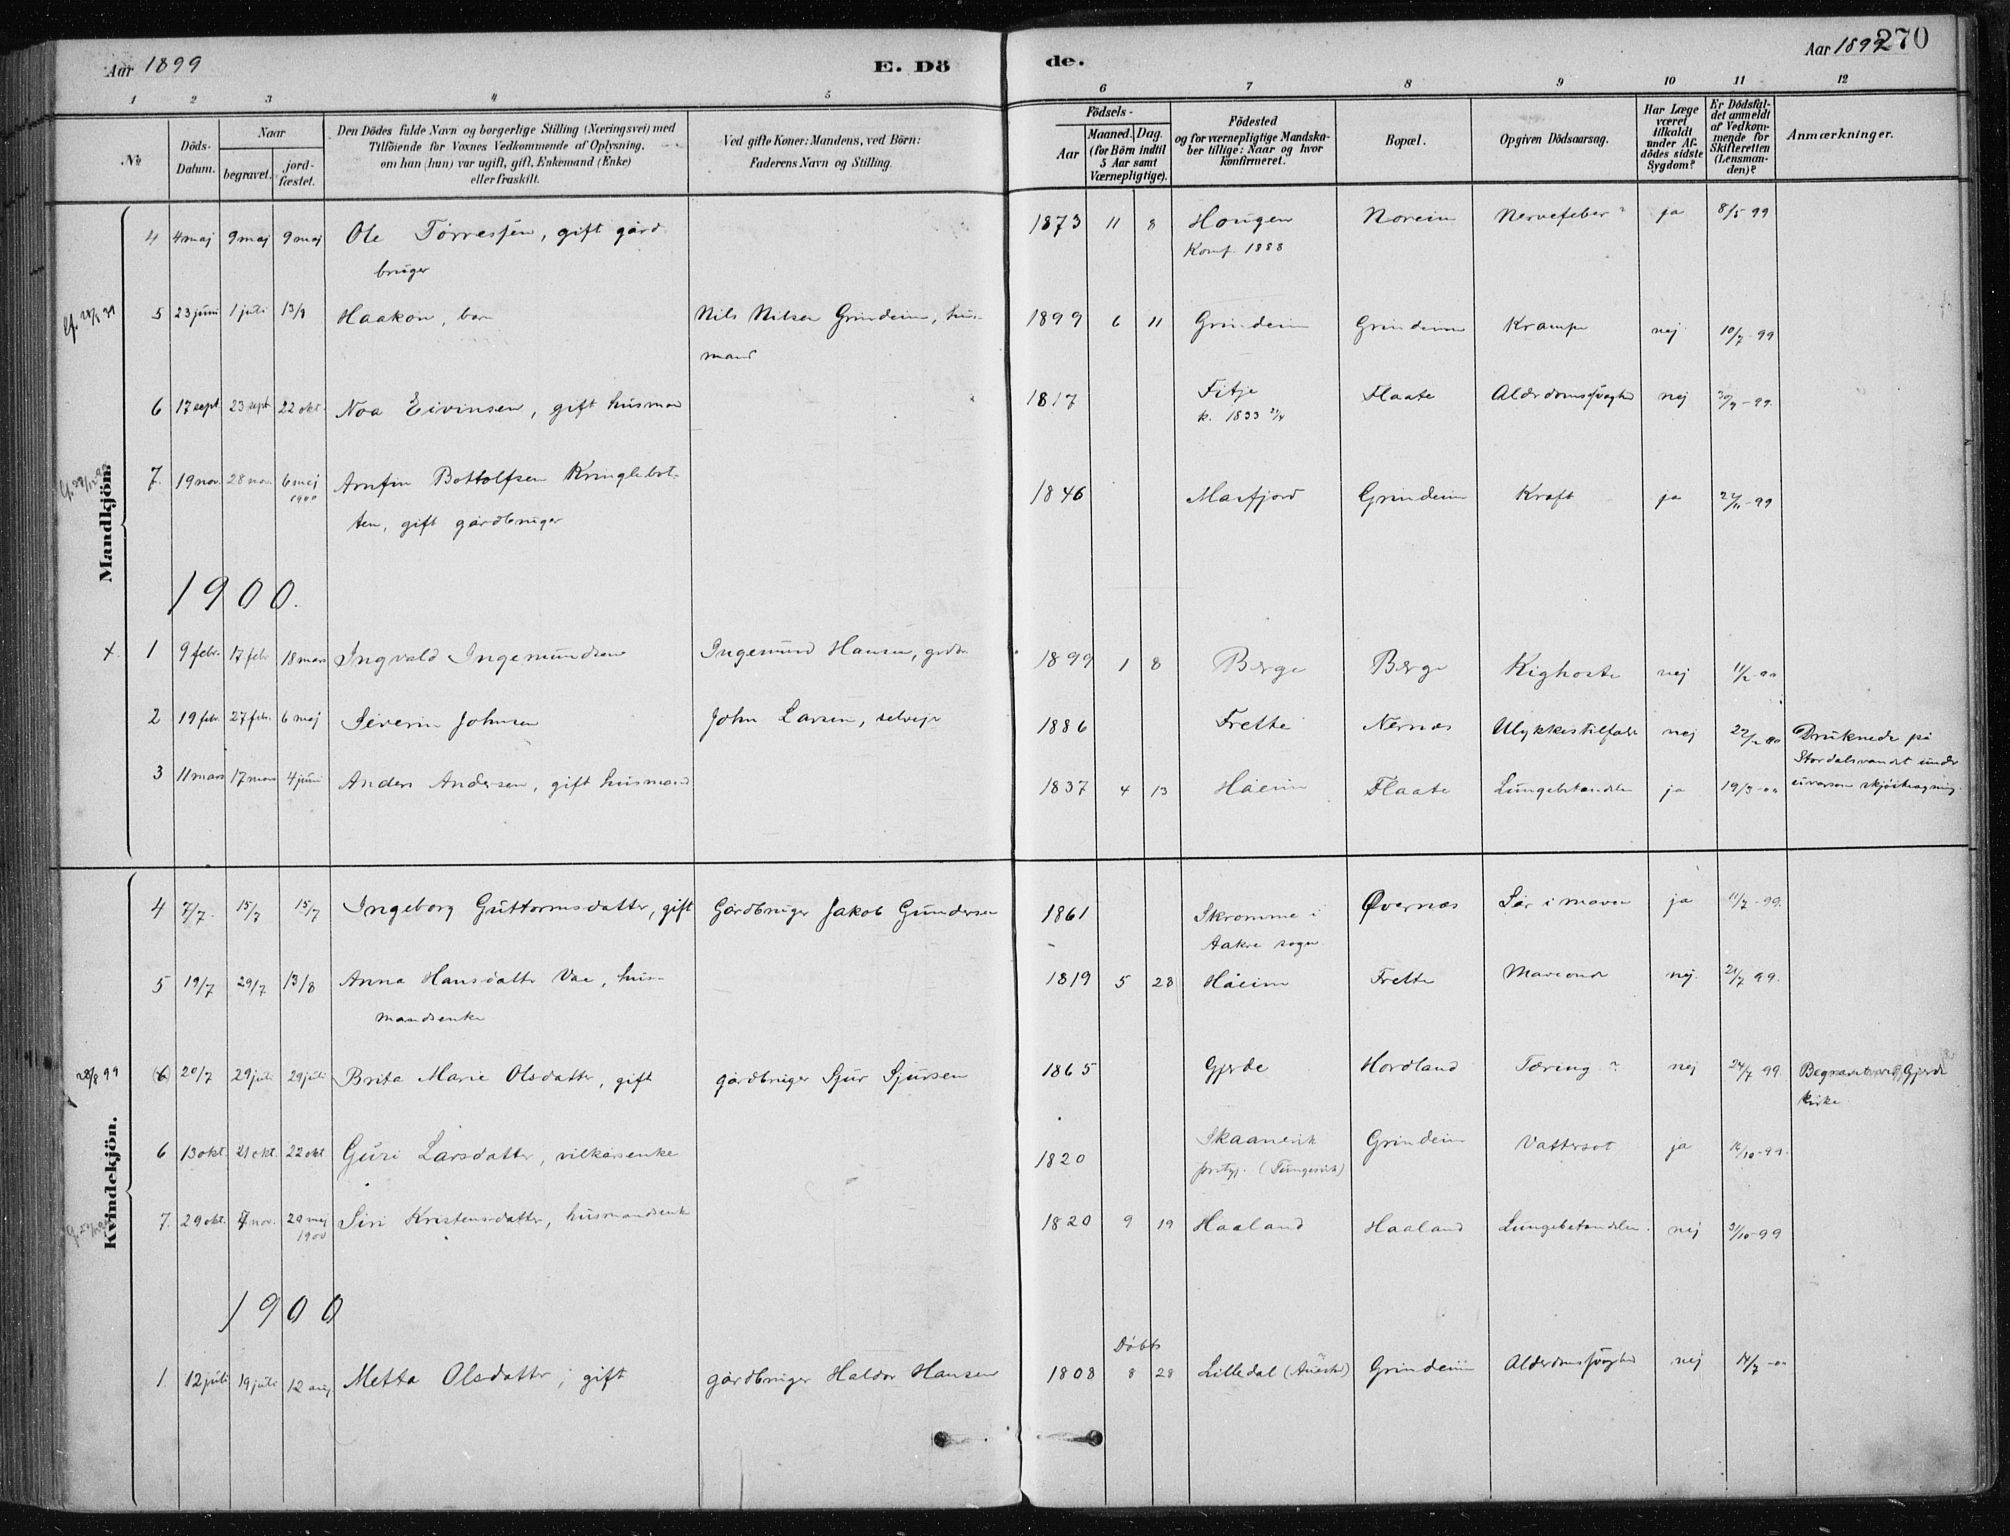 Aar 1899
E. Dö
de.
Aar 1899
270
1 2 3 4 5 6 7 8 9 10 11 12
No
Döds-
Datum.
Naar
begravet.
jord-
fæstet.
Den Dödes fulde Navn og borgerlige Stilling (Næringsvei) med
Tilföiende for Voxnes Vedkommende af Oplysning,
om han (hun) var ugift, gift, Enkemand (Enke)
eller fraskilt.
Ved gifte Koner: Mandens, ved Börn:
Faderens Navn og Stilling.
Födsels-
Aar
Maaned. Dag.
(for Börn indtil
5 Aar samt
Værnepligtige).
Födested
og for værnepligtige Mandska-
ber tillige: Naar og hvor
Konfirmeret.
Bopæl.
Opgiven Dödsaarsag.
Har Læge
været
tilkaldt
under Af-
dödes sidste
Sygdom?
Er Dödsfal-
det anmeldt
af Vedkom-
mende for
Skifteretten
(Lensman-
den)?
Anmærkninger.
Mandkjön.
4 4 maj 9 maj 9 maj Ole Tørresen, gift gård 1873 11 8 Hougen Noreim Nervefeber? ja 8/5 99
bruger Konf. 1888
5 23 juni 1 juli 13/8 Haakon, barn Nils Nilsen Grindeim, hus- 1899 6 11 Grindeim Grindeim Krampe nej 10/7-99
mand
6 17 sept 23 sept 22 okt. Noa Eivinsen, gift husmand 1817 Fitje Flaate Alderdomssvaghed nej 30/9-99.
k. 1833
7. 19 nov. 28 nov. 6 maj Arnfin Bottolfsen Kringlebot- 1846 Masfjord Grindeim Kræft ja 22/11-99
1900
ten, gift gårdbruger
1900.
+ 1 9 febr. 17 febr 18 mars Ingvald Ingemundsen Ingemund Hansen, grdbr. 1899 1 8 Berge Berge Kighoste nej 11/2 00
2 19 febr. 27 febr. 6 maj Severin Johnsen John Larsen, selvejer 1886 Frette Nernæs Ulykkestilfælde nej 22/2 00 Druknede på
Stordalsvandet under
3 11 mars 17 mars 4 juni Anders Andersen, gift husmand 1837 4 13 Håeim Flaate Lungebetændelse ja 19/3-00
Kvindekjön.
4 7/7. 15/7 15/7 Ingeborg Guttormsdatter, gift Gårdbruger Jakob Gundersen 1861 Skromme i Øvernæs Sår i maven ja 11/7-99.
Aakre sogn.
5 19/7 29/7 13/8 Anna Hansdatter Vae, hus- 1819 5 28 Håeim Frette Maveondt nej. 21/7 99.
mandsenke
28/8 99 (6) 20/7 29 juli 29 juli Brita Marie Olsdatter, gift gårdbruger Sjur Sjursen 1865 Gjerde Hordland Tæring? nej 24/7 99. Begravet ved Gjerde
kirke.
6 13 okt. 21 okt. 22 okt Guri Larsdatter, vilkårsenke 1820 Skaanevik Grindeim Vattersot ja 16/10-99.
prstgj.
7. 29 okt. 7 nov. 20 maj Siri Kristensdatter, husmandsenke 1820 9 19 Haaland Haaland Lungebetændelse. nej 31/10-99
1900
1900
Døbt
1. 12 juli 19 juli 12 aug. Metta Olsdatter, gift gårdbruger Haldor Hansen 1808 8 28 Lilledal Grindeim Alderdomssvaghed nej 14/7-00